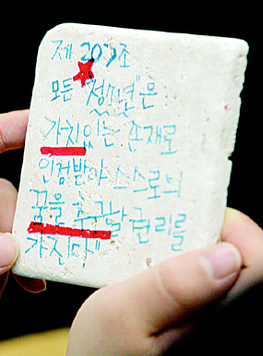 제 207조
모든 "청소년"은
가치있는 존재로
인정받아 스스로의
꿈을 추구할 권리를
가진다"